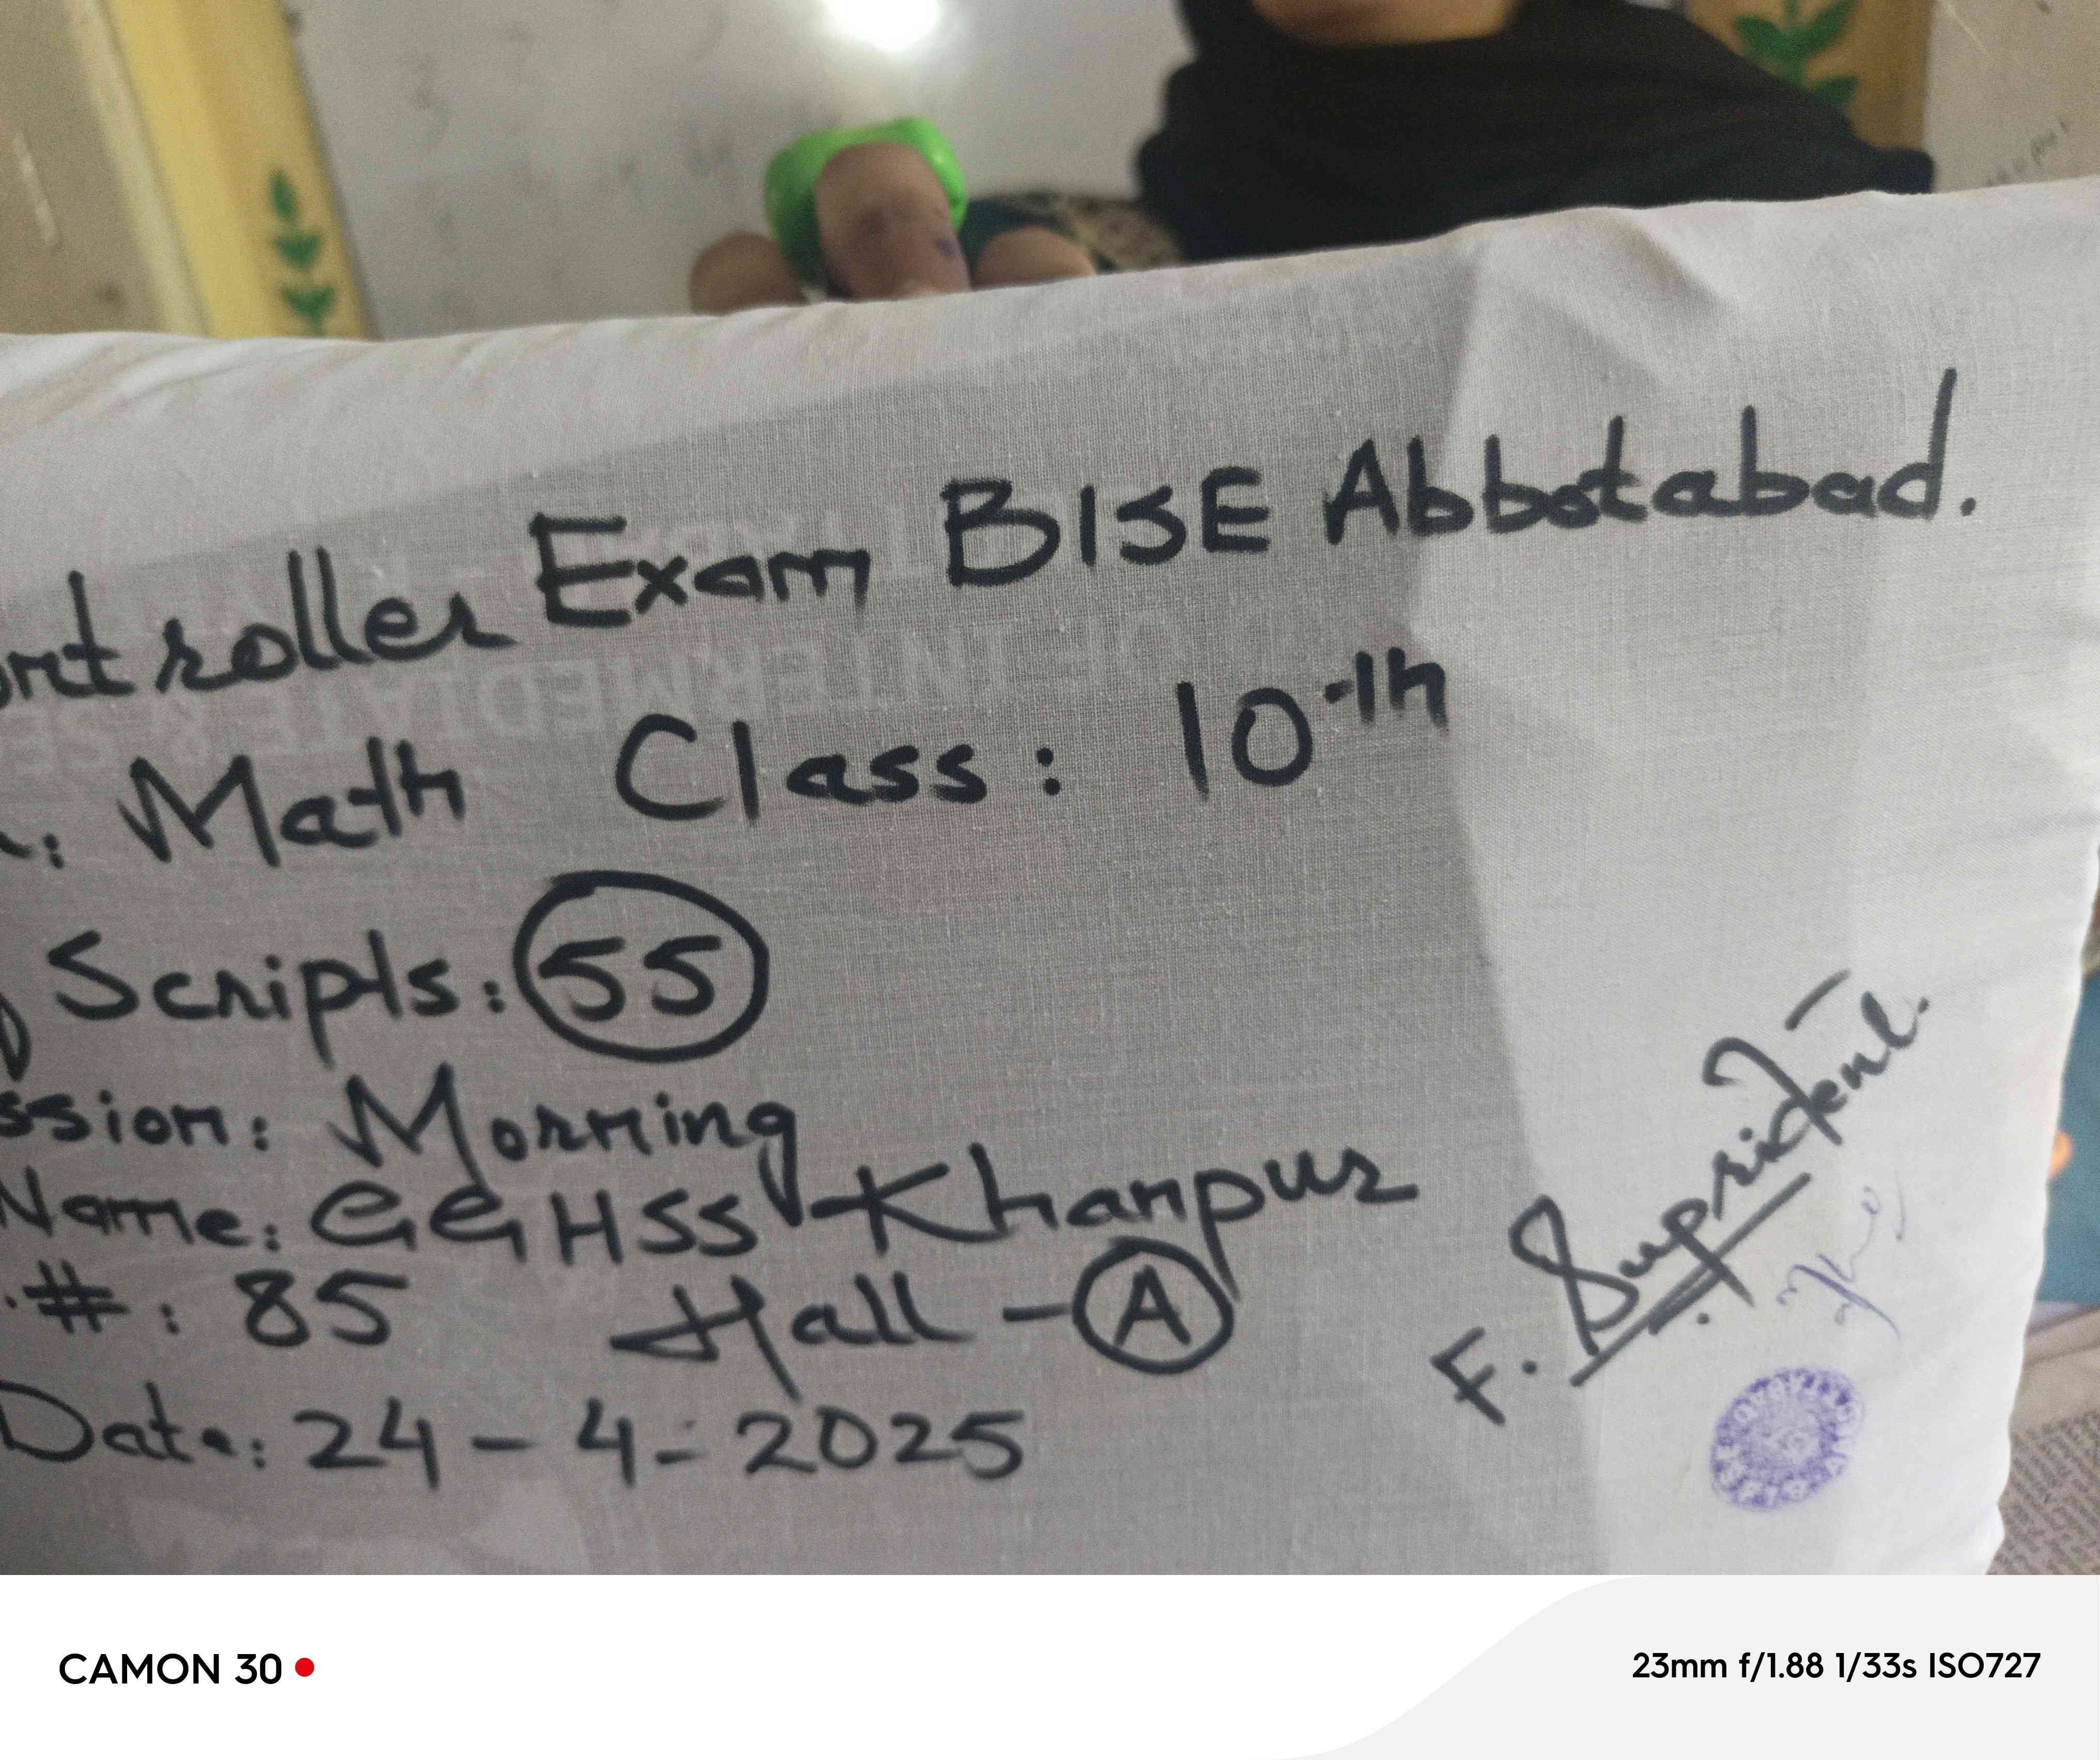 ontroller Exam BISE Abbotabad.
: Math Class: 10th
Scripts: 55
ssion: Morning
Name: GGHSS Khanpur
.#: 85 Hall - A
Date: 24-4-2025
F. Supridént.
CAMON 30
23mm f/1.88 1/33s ISO727